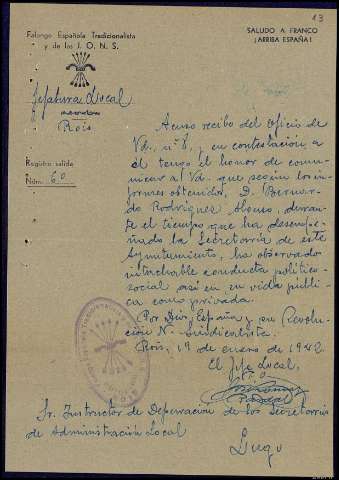 13
Falange Española Tradicionalista
y de las J. O. N. S.
SALUDO A FRANCO
¡ARRIBA ESPAÑA!
Jefatura Local
Rois
Registro salida
Núm. 60
Acuso recibo del oficio de
Vd. nº 8, y en contestación a
él tengo el honor de comu-
nicar a Vd. que según los in-
formes obtenidos, D. Bernar-
do Rodríguez Alonso, duran-
te el tiempo que ha desempe-
ñado la Secretaría de este
Ayuntamiento, ha observado
intachable conducta político-
social así en su vida públi-
ca como privada.
Por Dios, España y su Revolu-
ción N- Sindicalista.
Rois, 19 de enero de 1942
El Jefe Local,
Sr. Instructor de Depuración de los Secretarios
de Administración Local
Lugo